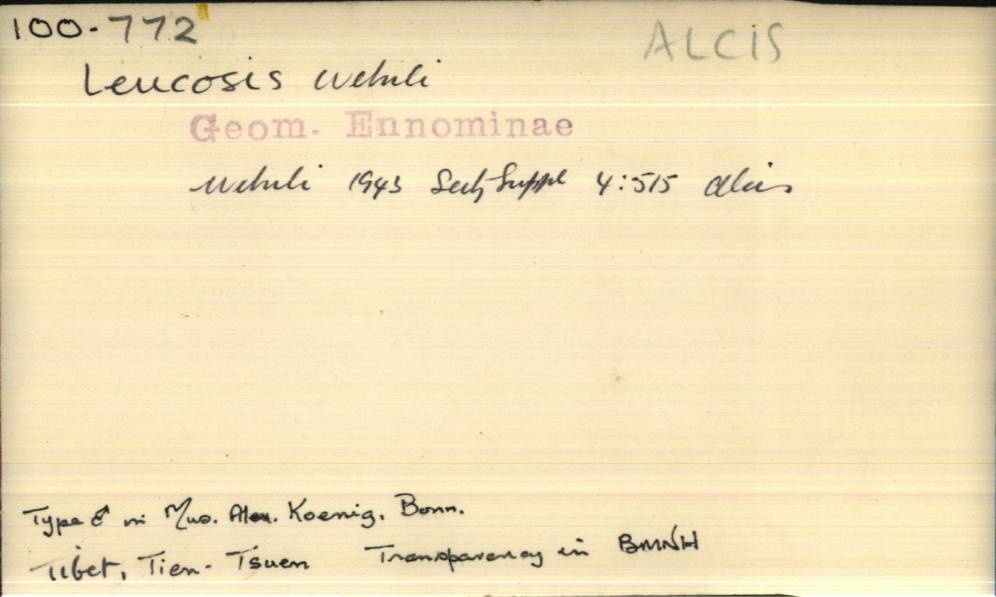 100-772
ALCIS
Leucosis Wehrli
Geom. Ennominae
Wehrli 1943 Seitz Suppl 4:515 Alcis
Type ♂ in Mus. Alex. Koenig, Bonn.
Tibet, Tien-Tsuen Transparency in BMNH